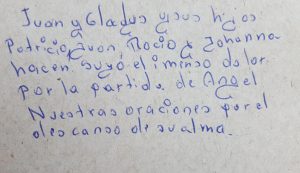 Juan y Gladys y sus hijos
Patricio, Juan, Rocio y Johanna
hacen suyo el imenso dolor
por la partida de Angel
Nuestras oraciones por el
descanso de su alma.